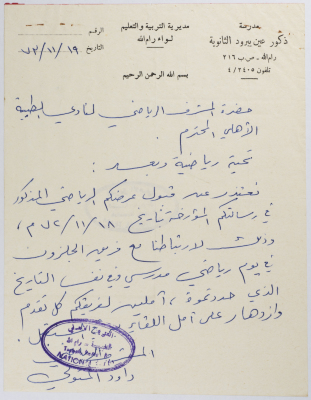 بمدرسة
ذكور عين يبرود الثانوية
رام الله ـ ص.ب ٢١٦
تلفون ٢٤٠٥ / ٤
مديرية التربية والتعليم
لواء رام الله
الرقم
التاريخ ٧٢/١١/١٩
بسم الله الرحمن الرحيم
حضرة المشرف الرياضي لنادي الطيبة
الأهلي المحترم .
تحية رياضية وبعد :
نعتذر عن قبول عرضكم الرياضي المذكور
في رسالتكم المؤرخة بتاريخ ٧٢/١١/١٨ م ،
وذلك لارتباطنا مع فريق الجلزون
في يوم رياضي مدرسي في نفس التاريخ
الذي حددتموه ، آملين لفريقكم كل تقدم
وازدهار على أمل اللقاء
داود
NATION